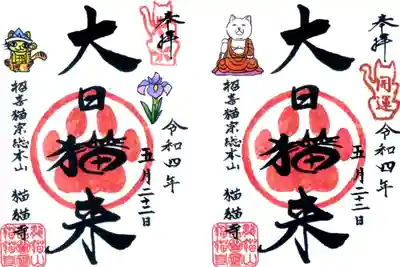 奉拝
令和四年
五月二十二日
大日猫来
招喜猫宗総本山
猫猫寺
奉拝
開運
令和四年
五月二十二日
大日猫来
招喜猫宗総本山
猫猫寺